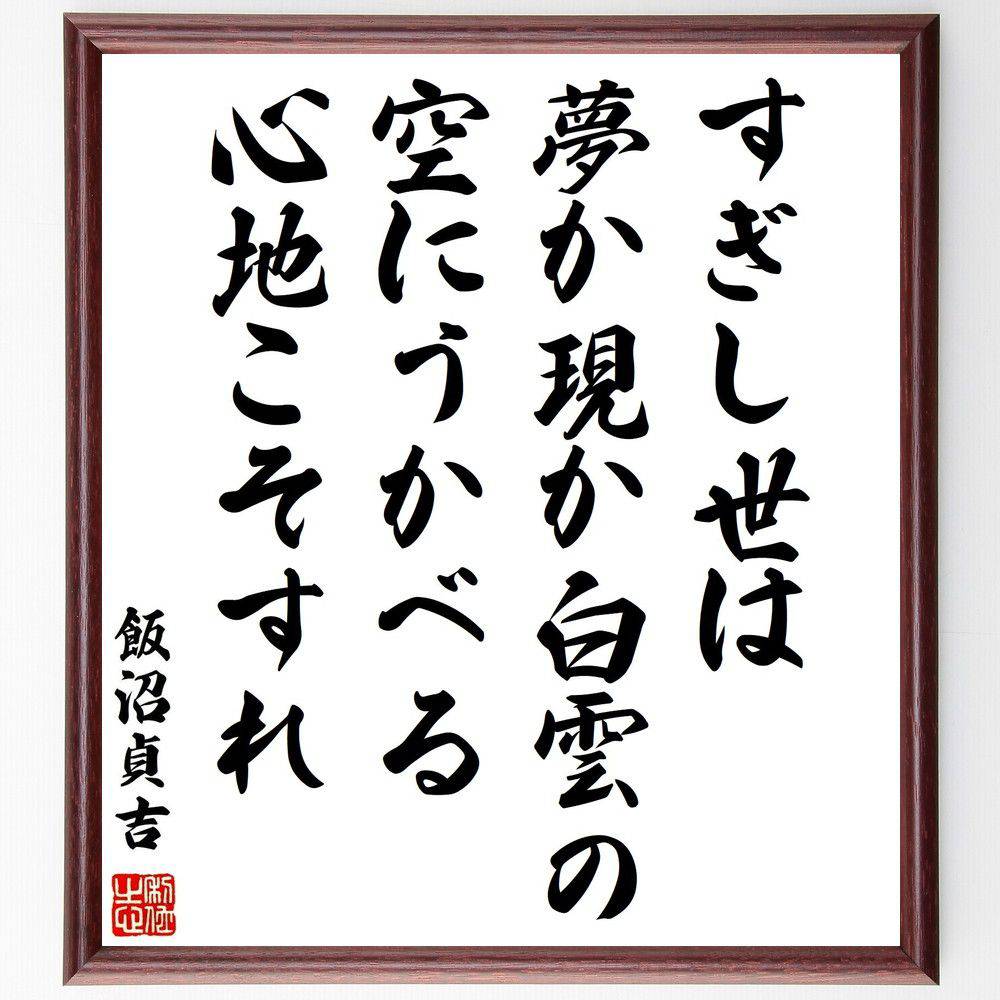 すぎし世は
夢か現か白雲の
空にうかべる
心地こそすれ
飯沼貞吉